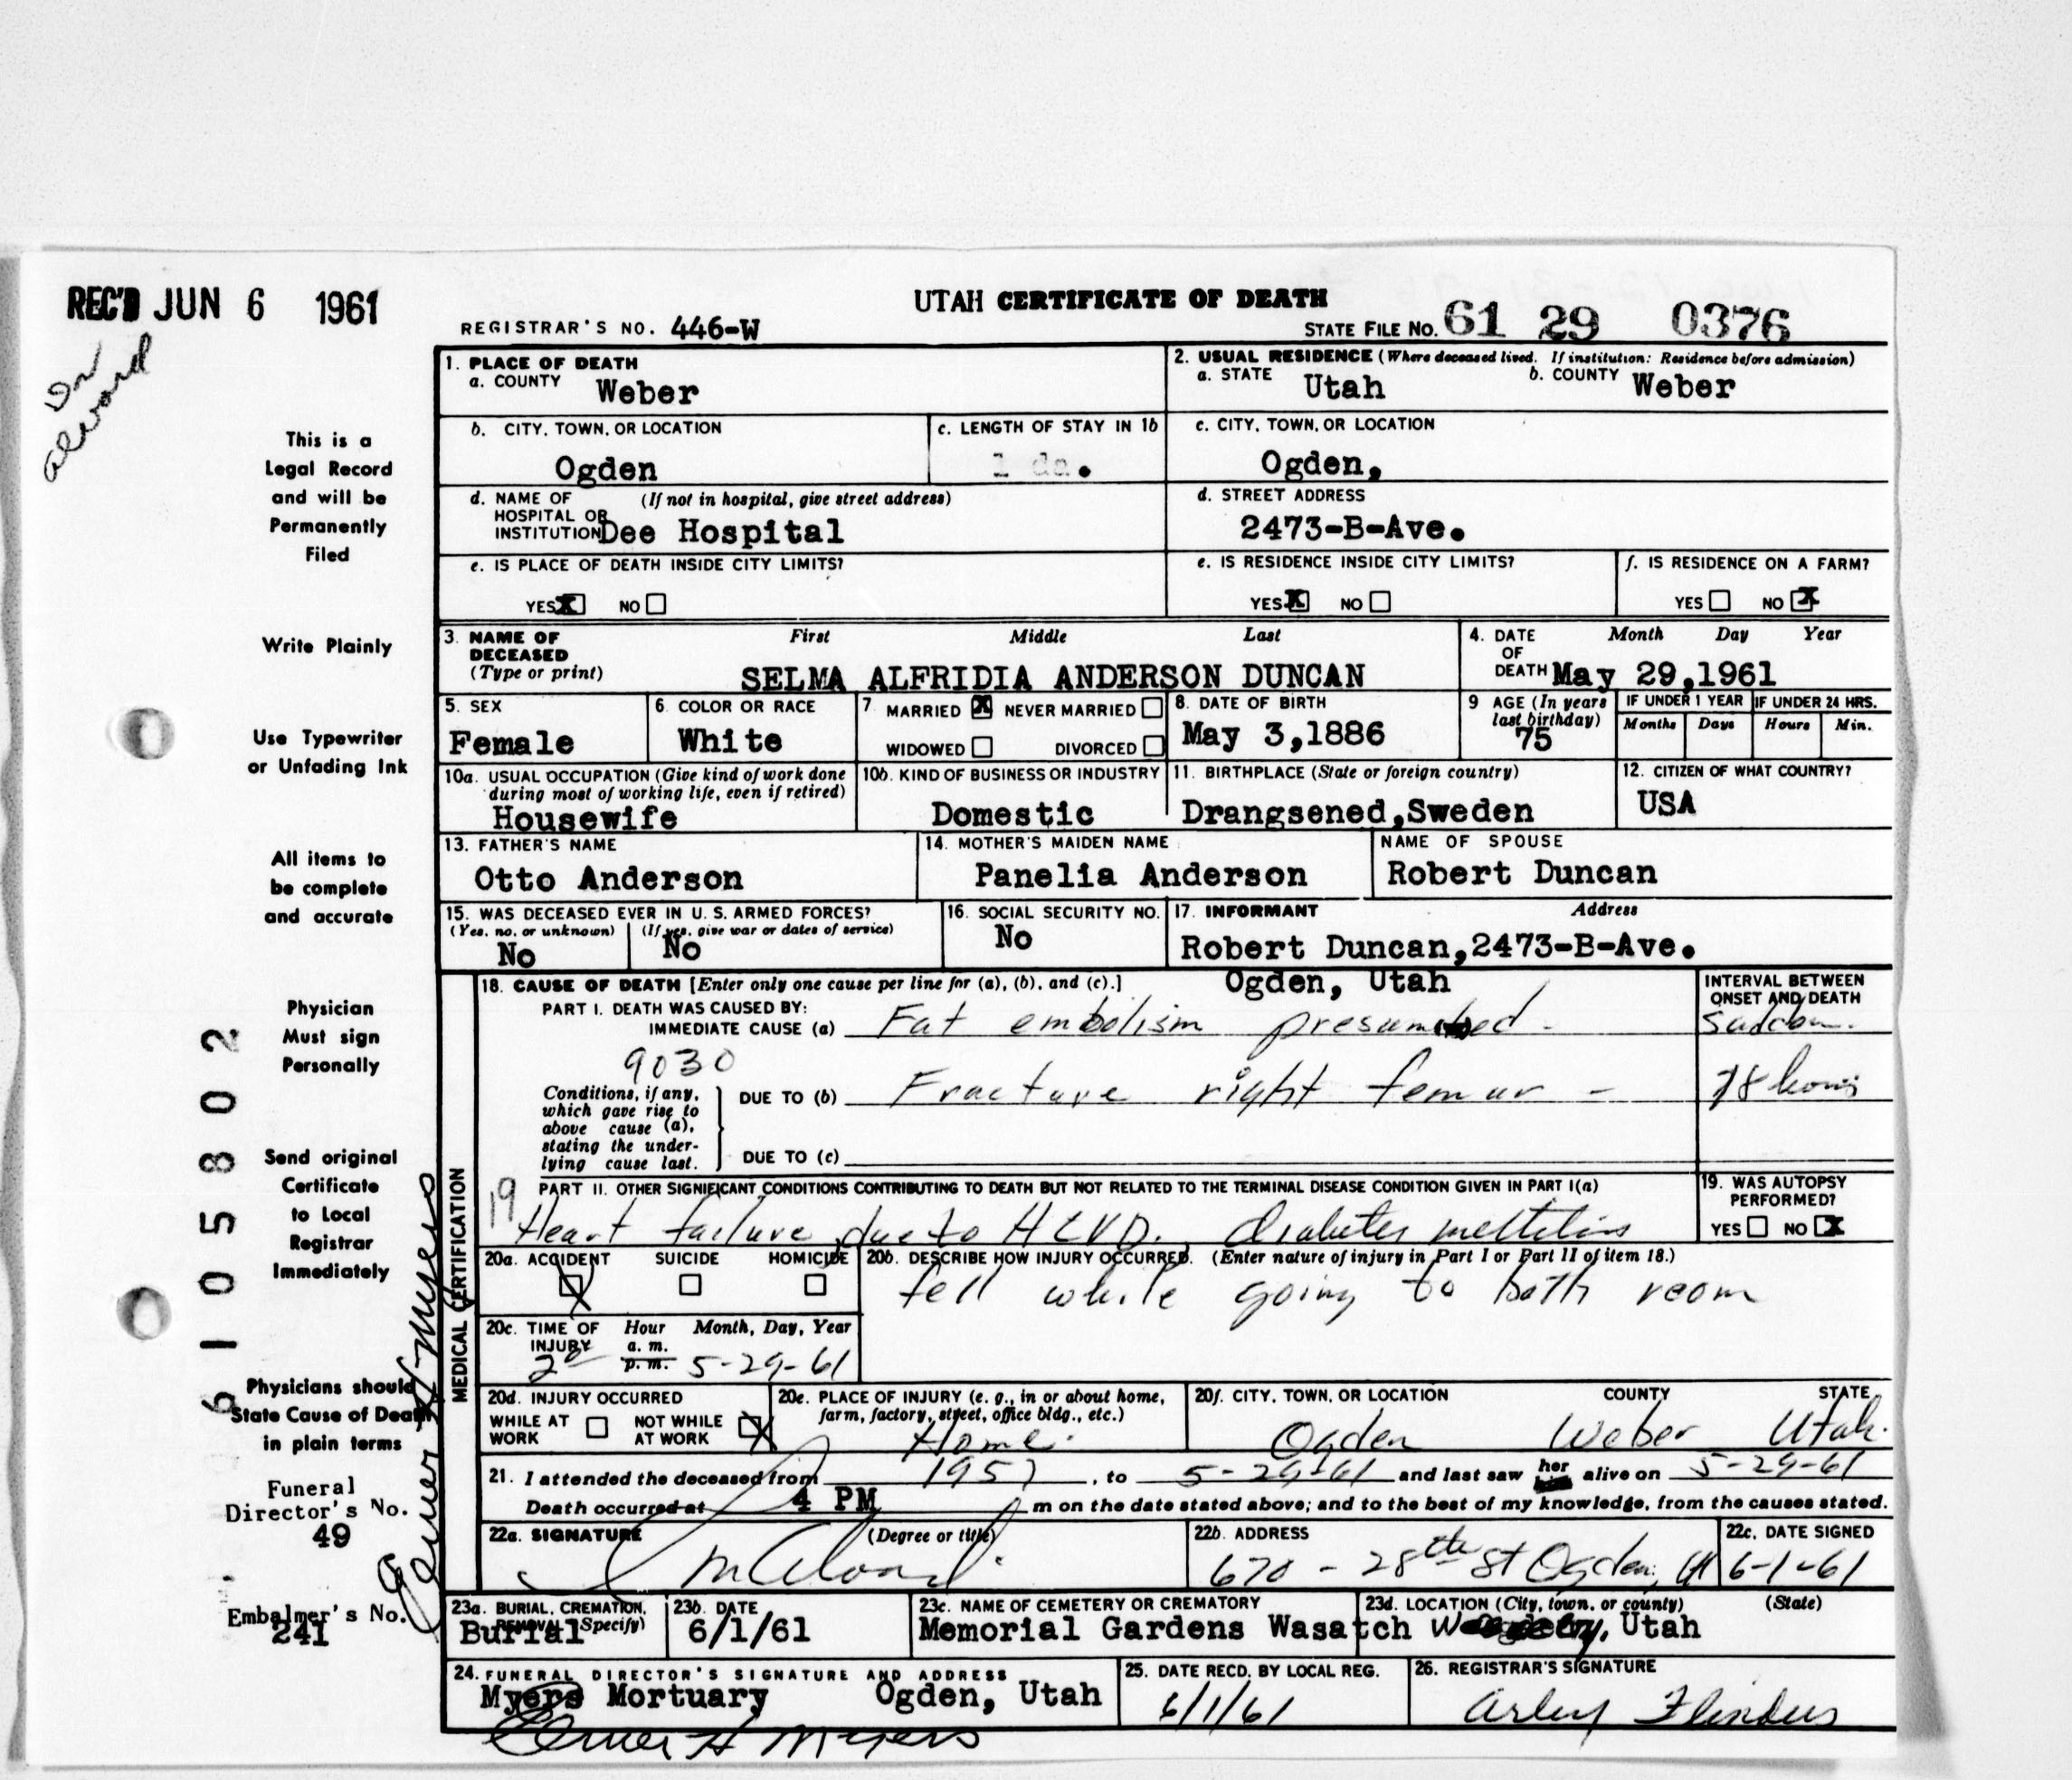 REC'D JUN 6 1961
UTAH CERTIFICATE OF DEATH
REGISTRAR'S NO. 446-W
STATE FILE NO. 61 29 0376
Dr
Alvord
This is a
Legal Record
and will be
Permanently
Filed
Write Plainly
Use Typewriter
or Unfading Ink
All items to
be complete
and accurate
Physician
Must sign
Personally
Send original
Certificate
to Local
Registrar
Immediately
Physicians should
State Cause of Death
in plain terms
Funeral
Director's No.
49
Embalmer's No.
241
6 1 0 5 8 0 2
Elmer H Myers
1. PLACE OF DEATH
a. COUNTY Weber
2. USUAL RESIDENCE (Where deceased lived. If institution: Residence before admission)
a. STATE Utah b. COUNTY Weber
b. CITY, TOWN, OR LOCATION
Ogden
c. LENGTH OF STAY IN 1b
1 da.
c. CITY, TOWN, OR LOCATION
Ogden,
d. NAME OF (If not in hospital, give street address)
HOSPITAL OR
INSTITUTION Dee Hospital
d. STREET ADDRESS
2473-B-Ave.
e. IS PLACE OF DEATH INSIDE CITY LIMITS?
YES X NO
e. IS RESIDENCE INSIDE CITY LIMITS?
YES X NO
f. IS RESIDENCE ON A FARM?
YES NO X
3. NAME OF DECEASED (Type or print)
First Middle Last
SELMA ALFRIDIA ANDERSON DUNCAN
4. DATE OF DEATH Month Day Year
May 29,1961
5. SEX
Female
6. COLOR OR RACE
White
7. MARRIED X NEVER MARRIED
WIDOWED DIVORCED
8. DATE OF BIRTH
May 3,1886
9 AGE (In years last birthday)
75
IF UNDER 1 YEAR IF UNDER 24 HRS.
Months Days Hours Min.
10a. USUAL OCCUPATION (Give kind of work done during most of working life, even if retired)
Housewife
10b. KIND OF BUSINESS OR INDUSTRY
Domestic
11. BIRTHPLACE (State or foreign country)
Drangsened,Sweden
12. CITIZEN OF WHAT COUNTRY?
USA
13. FATHER'S NAME
Otto Anderson
14. MOTHER'S MAIDEN NAME
Panelia Anderson
NAME OF SPOUSE
Robert Duncan
15. WAS DECEASED EVER IN U. S. ARMED FORCES?
(Yes, no, or unknown) (If yes, give war or dates of service)
No No
16. SOCIAL SECURITY NO.
No
17. INFORMANT Address
Robert Duncan,2473-B-Ave.
Ogden, Utah
MEDICAL CERTIFICATION
18. CAUSE OF DEATH [Enter only one cause per line for (a), (b), and (c).]
INTERVAL BETWEEN
ONSET AND DEATH
PART I. DEATH WAS CAUSED BY:
IMMEDIATE CAUSE (a) Fat embolism presumed - Sudden.
9030
Conditions, if any,
which gave rise to
above cause (a),
stating the under-
lying cause last.
DUE TO (b) Fracture right femur - hours
DUE TO (c)
19
PART II. OTHER SIGNIFICANT CONDITIONS CONTRIBUTING TO DEATH BUT NOT RELATED TO THE TERMINAL DISEASE CONDITION GIVEN IN PART I(a)
Heart failure due to HCVD. diabetes mellitus
19. WAS AUTOPSY
PERFORMED?
YES NO X
20a. ACCIDENT SUICIDE HOMICIDE
X
20b. DESCRIBE HOW INJURY OCCURRED. (Enter nature of injury in Part I or Part II of item 18.)
fell while going to bath room
20c. TIME OF INJURY Hour Month, Day, Year
a. m.
p. m.
2 00 5-29-61
20d. INJURY OCCURRED
WHILE AT WORK NOT WHILE AT WORK X
20e. PLACE OF INJURY (e. g., in or about home, farm, factory, street, office bldg., etc.)
Home.
20f. CITY, TOWN, OR LOCATION COUNTY STATE
Ogden Weber Utah.
21. I attended the deceased from 1957, to 5-29-61 and last saw her alive on 5-29-61
Death occurred at 4 PM m on the date stated above; and to the best of my knowledge, from the causes stated.
22a. SIGNATURE (Degree or title)
22b. ADDRESS
670 - 28th St Ogden, Ut
22c. DATE SIGNED
6-1-61
23a. BURIAL, CREMATION, REMOVAL (Specify)
Burial
23b. DATE
6/1/61
23c. NAME OF CEMETERY OR CREMATORY
Memorial Gardens Wasatch
23d. LOCATION (City, town, or county) (State)
Utah
24. FUNERAL DIRECTOR'S SIGNATURE AND ADDRESS
Myers Mortuary Ogden, Utah
Elmer H Myers
25. DATE RECD. BY LOCAL REG.
6/1/61
26. REGISTRAR'S SIGNATURE
Arley Flinders